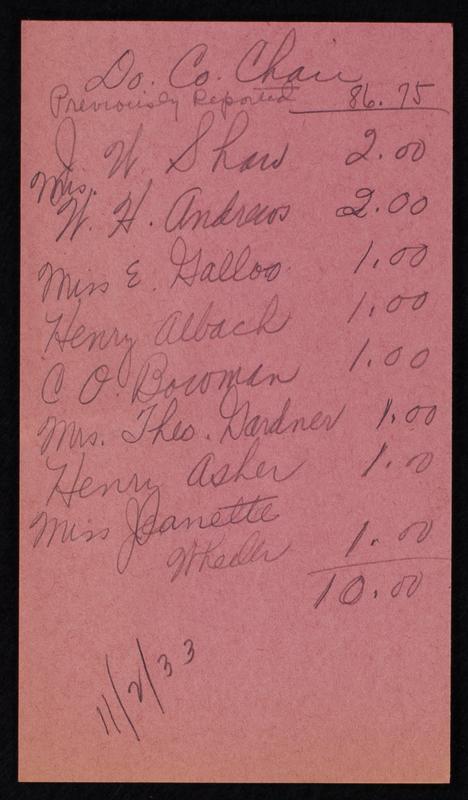 Do. Co. Chair
Previously Reported 86.75
J. W. Shaw 2.00
Mrs.
W. H. Andrews 2.00
Miss E. Galloo 1.00
Henry Albach 1.00
C O. Bowman 1.00
Mrs. Theo. Gardner 1.00
Henry Asher 1.00
Miss Jeanette
Wheeler 1.00
10.00
11/2/33